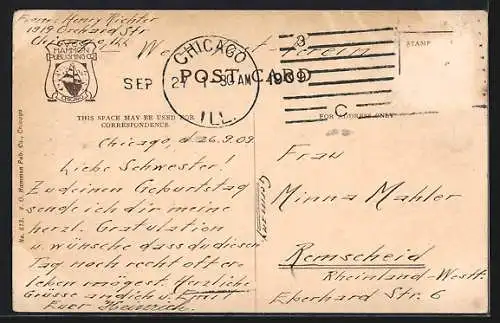 Henry Richter
1919 Orchard Str
Chicago Ill
V. O. HAMMON
PUBLISHING CO.
CHICAGO
CHICAGO
SEP 27 1-30AM 1909
ILL.
C
POST CARD
STAMP
THIS SPACE MAY BE USED FOR
CORRESPONDENCE.
FOR ADDRESS ONLY
No. 613. V. O. Hammon Pub. Co., Chicago
Chicago, d. 26.9.09
Liebe Schwester!
Zu deinen Geburtstag
sende ich dir meine
herzl. Gratulation
u. wünsche dass du diesen
Tag noch recht ofter-
leben mögest. Herzliche
Grüsse an dich u. Emil
Euer Heinrich.
Germany
Frau
Minna Mahler
Remscheid
Rheinland-Westf.
Eberhard Str. 6